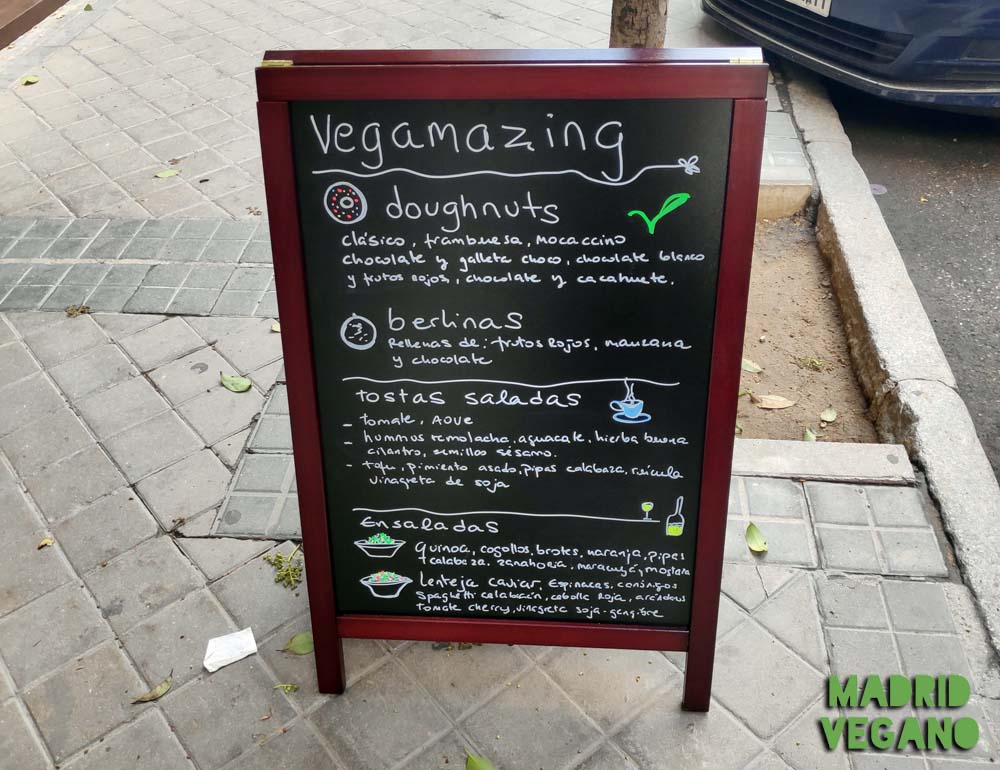 Vegamazing
doughnuts
clásico, frambuesa, mocaccino
chocolate y galleta choco, chocolate blanco
y frutos rojos, chocolate y cacahuete.
berlinas
Rellenas de: frutos rojos, manzana
y chocolate
tostas saladas
- tomate, AOVE
- hummus remolacha, aguacate, hierba buena
cilantro, semillas sésamo.
- tofu, pimiento asado, pipas calabaza, rúcula
vinagreta de soja
Ensaladas
quinoa, cogollos, brotes, naranja, pipas
calabaza, zanahoria, maracuyá, mostaza
lenteja caviar, espinacas, canónigos
spaghetti calabacín, cebolla roja, arándanos
tomate cherry, vinagreta soja-gengibre
MADRID
VEGANO